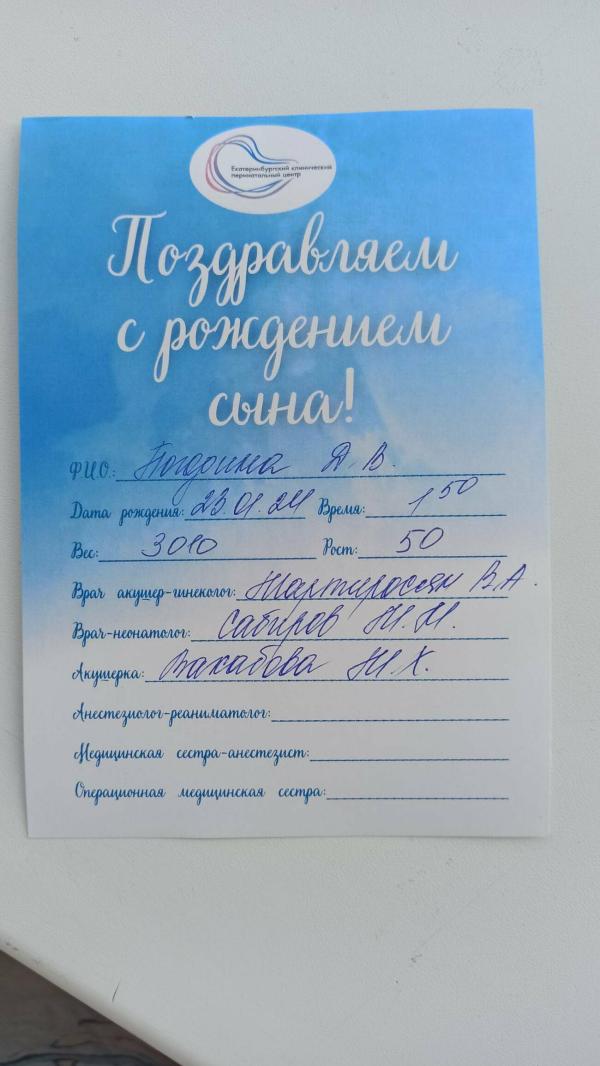 Екатеринбургский клинический
перинатальный центр
Поздравляем
с рождением
сына!
Ф.И.О.: Погодина Д. В.
Дата рождения: 23.01.24 Время: 1 50
Вес: 3010 Рост: 50
Врач акушер-гинеколог: Мартиросян В.А.
Врач-неонатолог: Сабиров М.М.
Акушерка: Вахабова М.Х.
Анестезиолог-реаниматолог:
Медицинская сестра-анестезист:
Операционная медицинская сестра: